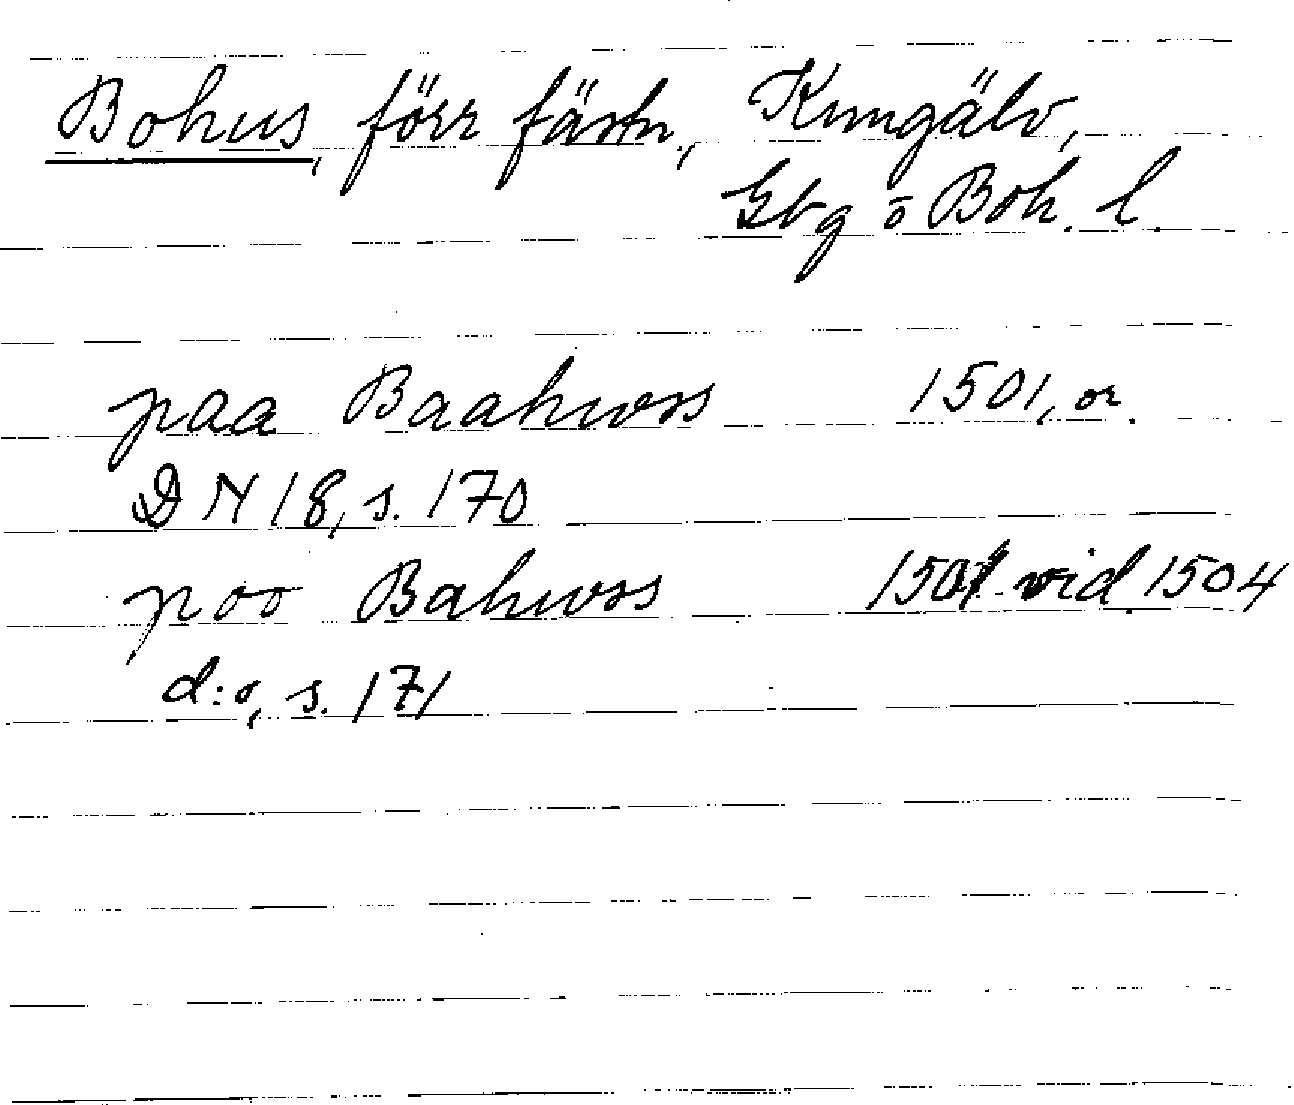 Bohus, förr fästn., Kungälv,
Gbg o Boh. l.
paa Baahwss 1501, or.
DN 18, s. 170
poo Bahwss 1501 vid. 1504
d:o, s. 171